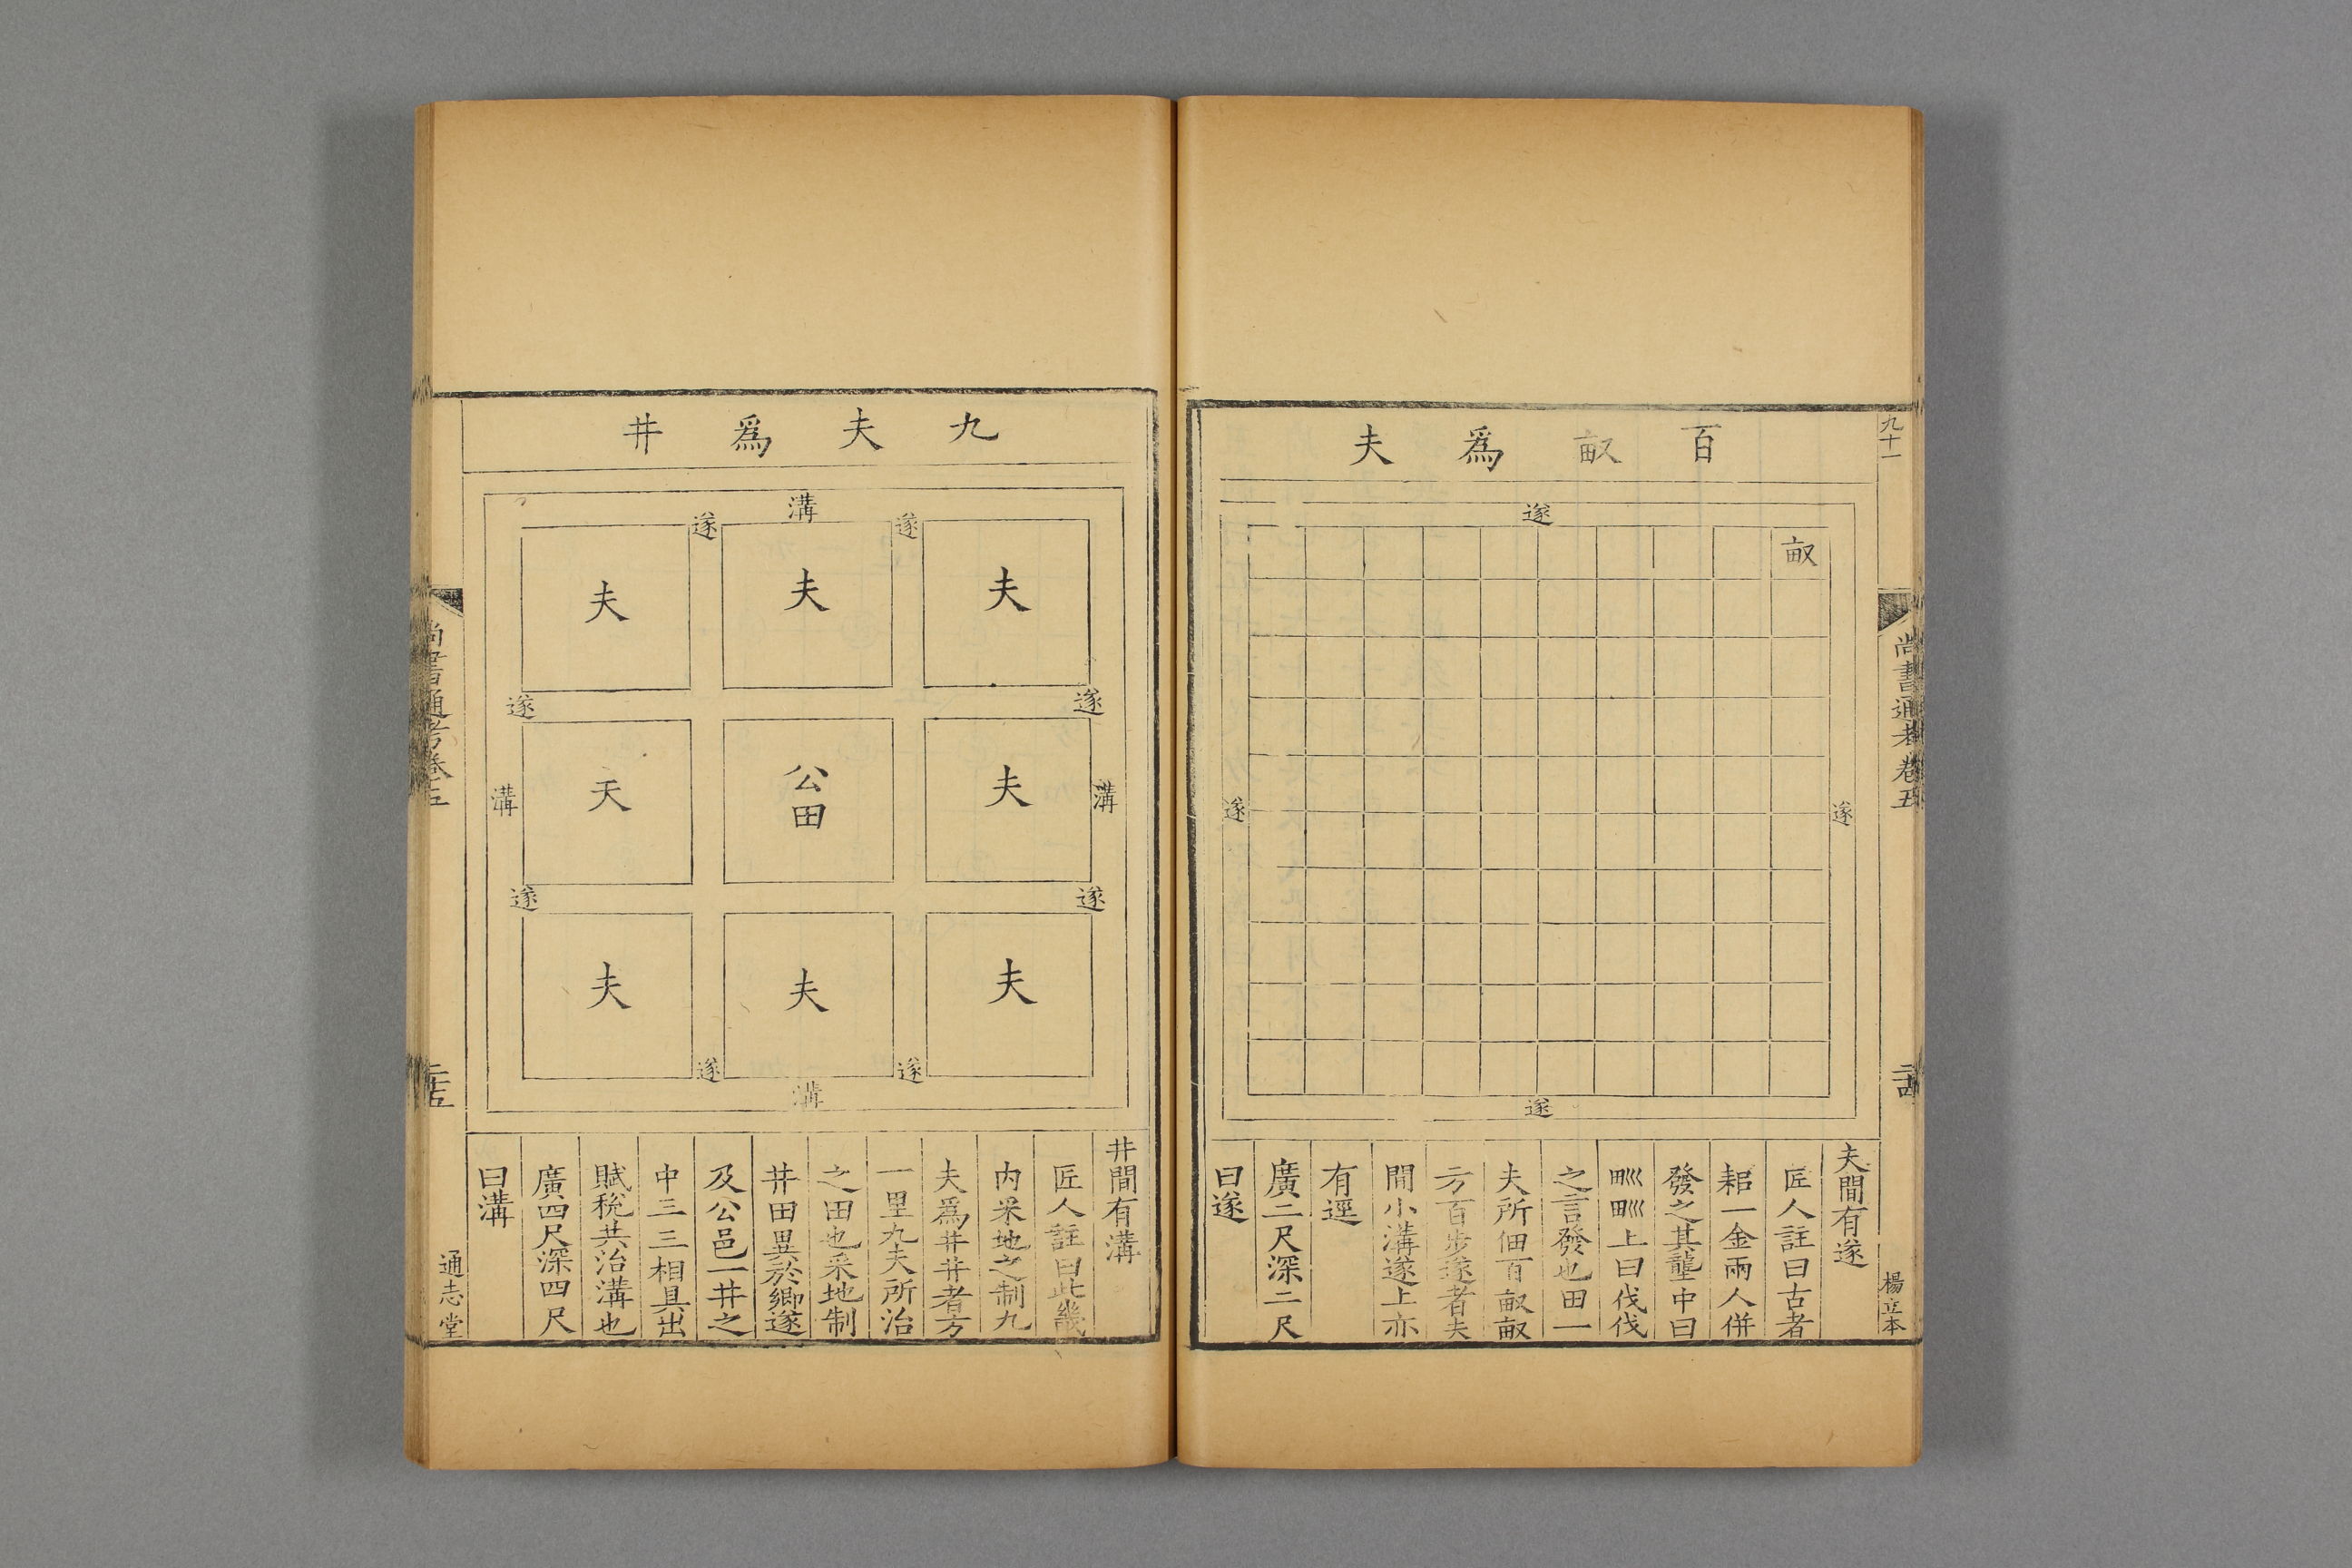 九十一
尚書通考卷五
二十四
楊立本
百畝爲夫
遂
畝
遂
遂
遂
夫間有遂
匠人註曰古者
耜一金兩人併
發之其壟中曰
甽甽上曰伐伐
之言發也田一
夫所佃百畝畝
方百步遂者夫
間小溝遂上亦
有逕
廣二尺深二尺
曰遂
九夫爲井
溝
遂
遂
夫
夫
夫
遂
遂
溝
夫
公田
天
溝
遂
遂
夫
夫
夫
遂
遂
溝
井間有溝
匠人註曰此畿
内采地之制九
夫爲井井者方
一里九夫所治
之田也采地制
井田異於鄉遂
及公邑一井之
中三三相具出
賦稅共治溝也
廣四尺深四尺
曰溝
尚書通考卷五
二十五
通志堂